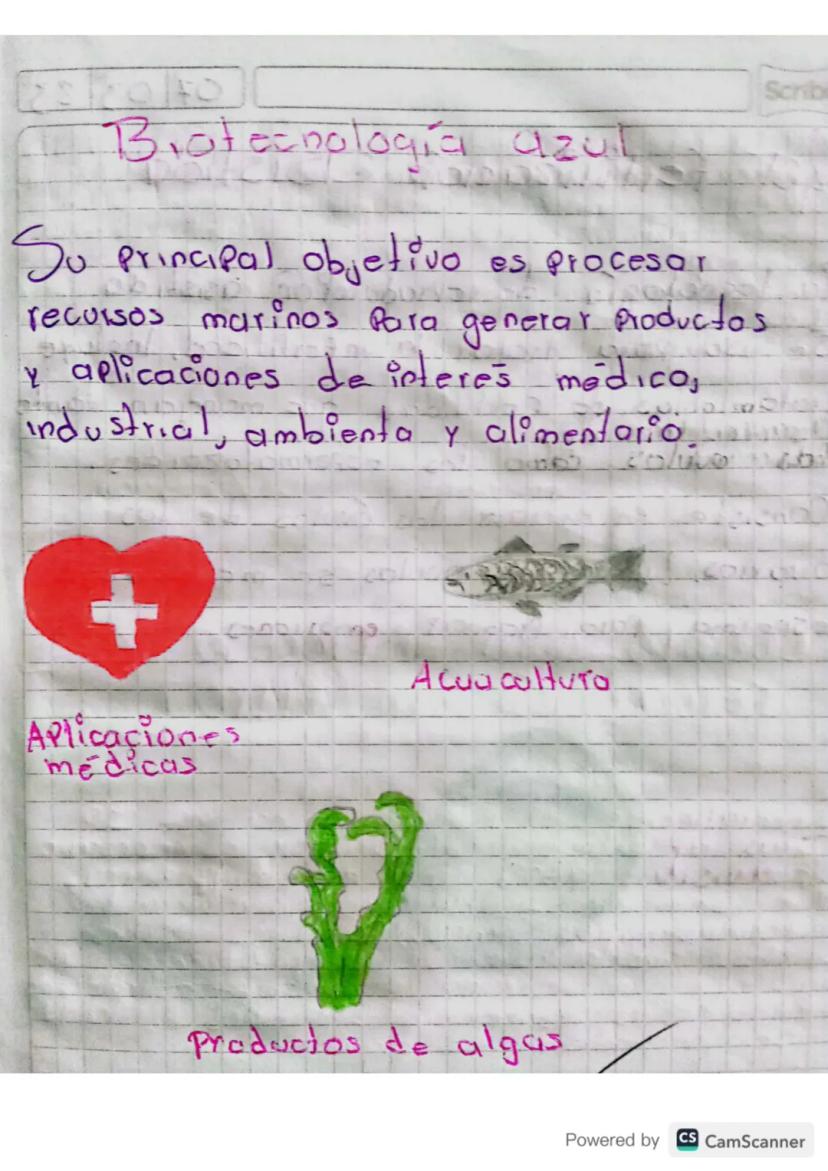 Biotecnología azul
Su principal objetivo es procesar
recursos marinos para generar productos
y aplicaciones de interés médico,
industrial, ambienta y alimentario.
Acuacultura
Aplicaciones
médicas
Productos de algas
Powered by CS CamScanner